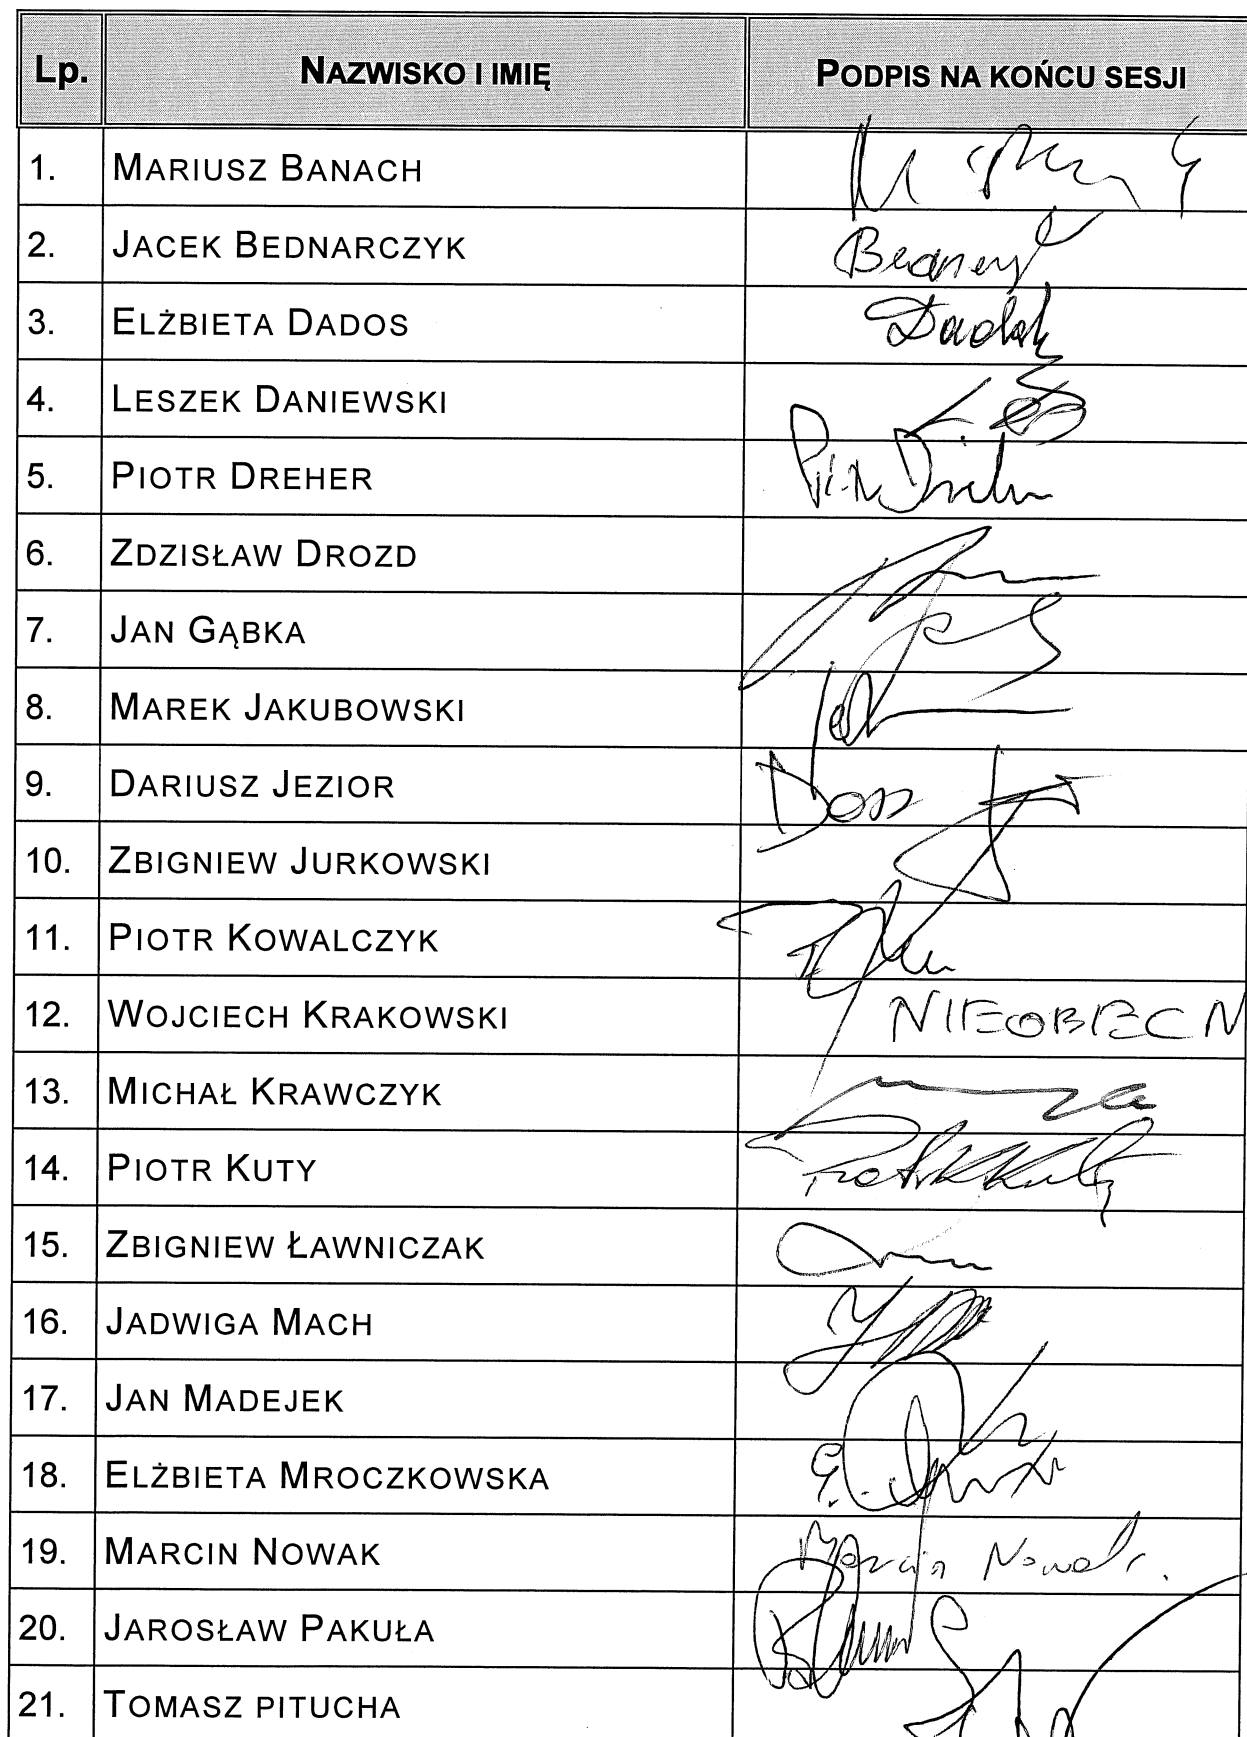 Lp. NAZWISKO I IMIĘ PODPIS NA KOŃCU SESJI
1. MARIUSZ BANACH
2. JACEK BEDNARCZYK
3. ELŻBIETA DADOS
4. LESZEK DANIEWSKI
5. PIOTR DREHER
6. ZDZISŁAW DROZD
7. JAN GĄBKA
8. MAREK JAKUBOWSKI
9. DARIUSZ JEZIOR
10. ZBIGNIEW JURKOWSKI
11. PIOTR KOWALCZYK
12. WOJCIECH KRAKOWSKI NIEOBECN
13. MICHAŁ KRAWCZYK
14. PIOTR KUTY
15. ZBIGNIEW ŁAWNICZAK
16. JADWIGA MACH
17. JAN MADEJEK
18. ELŻBIETA MROCZKOWSKA
19. MARCIN NOWAK Marcin Nowak
20. JAROSŁAW PAKUŁA
21. TOMASZ PITUCHA